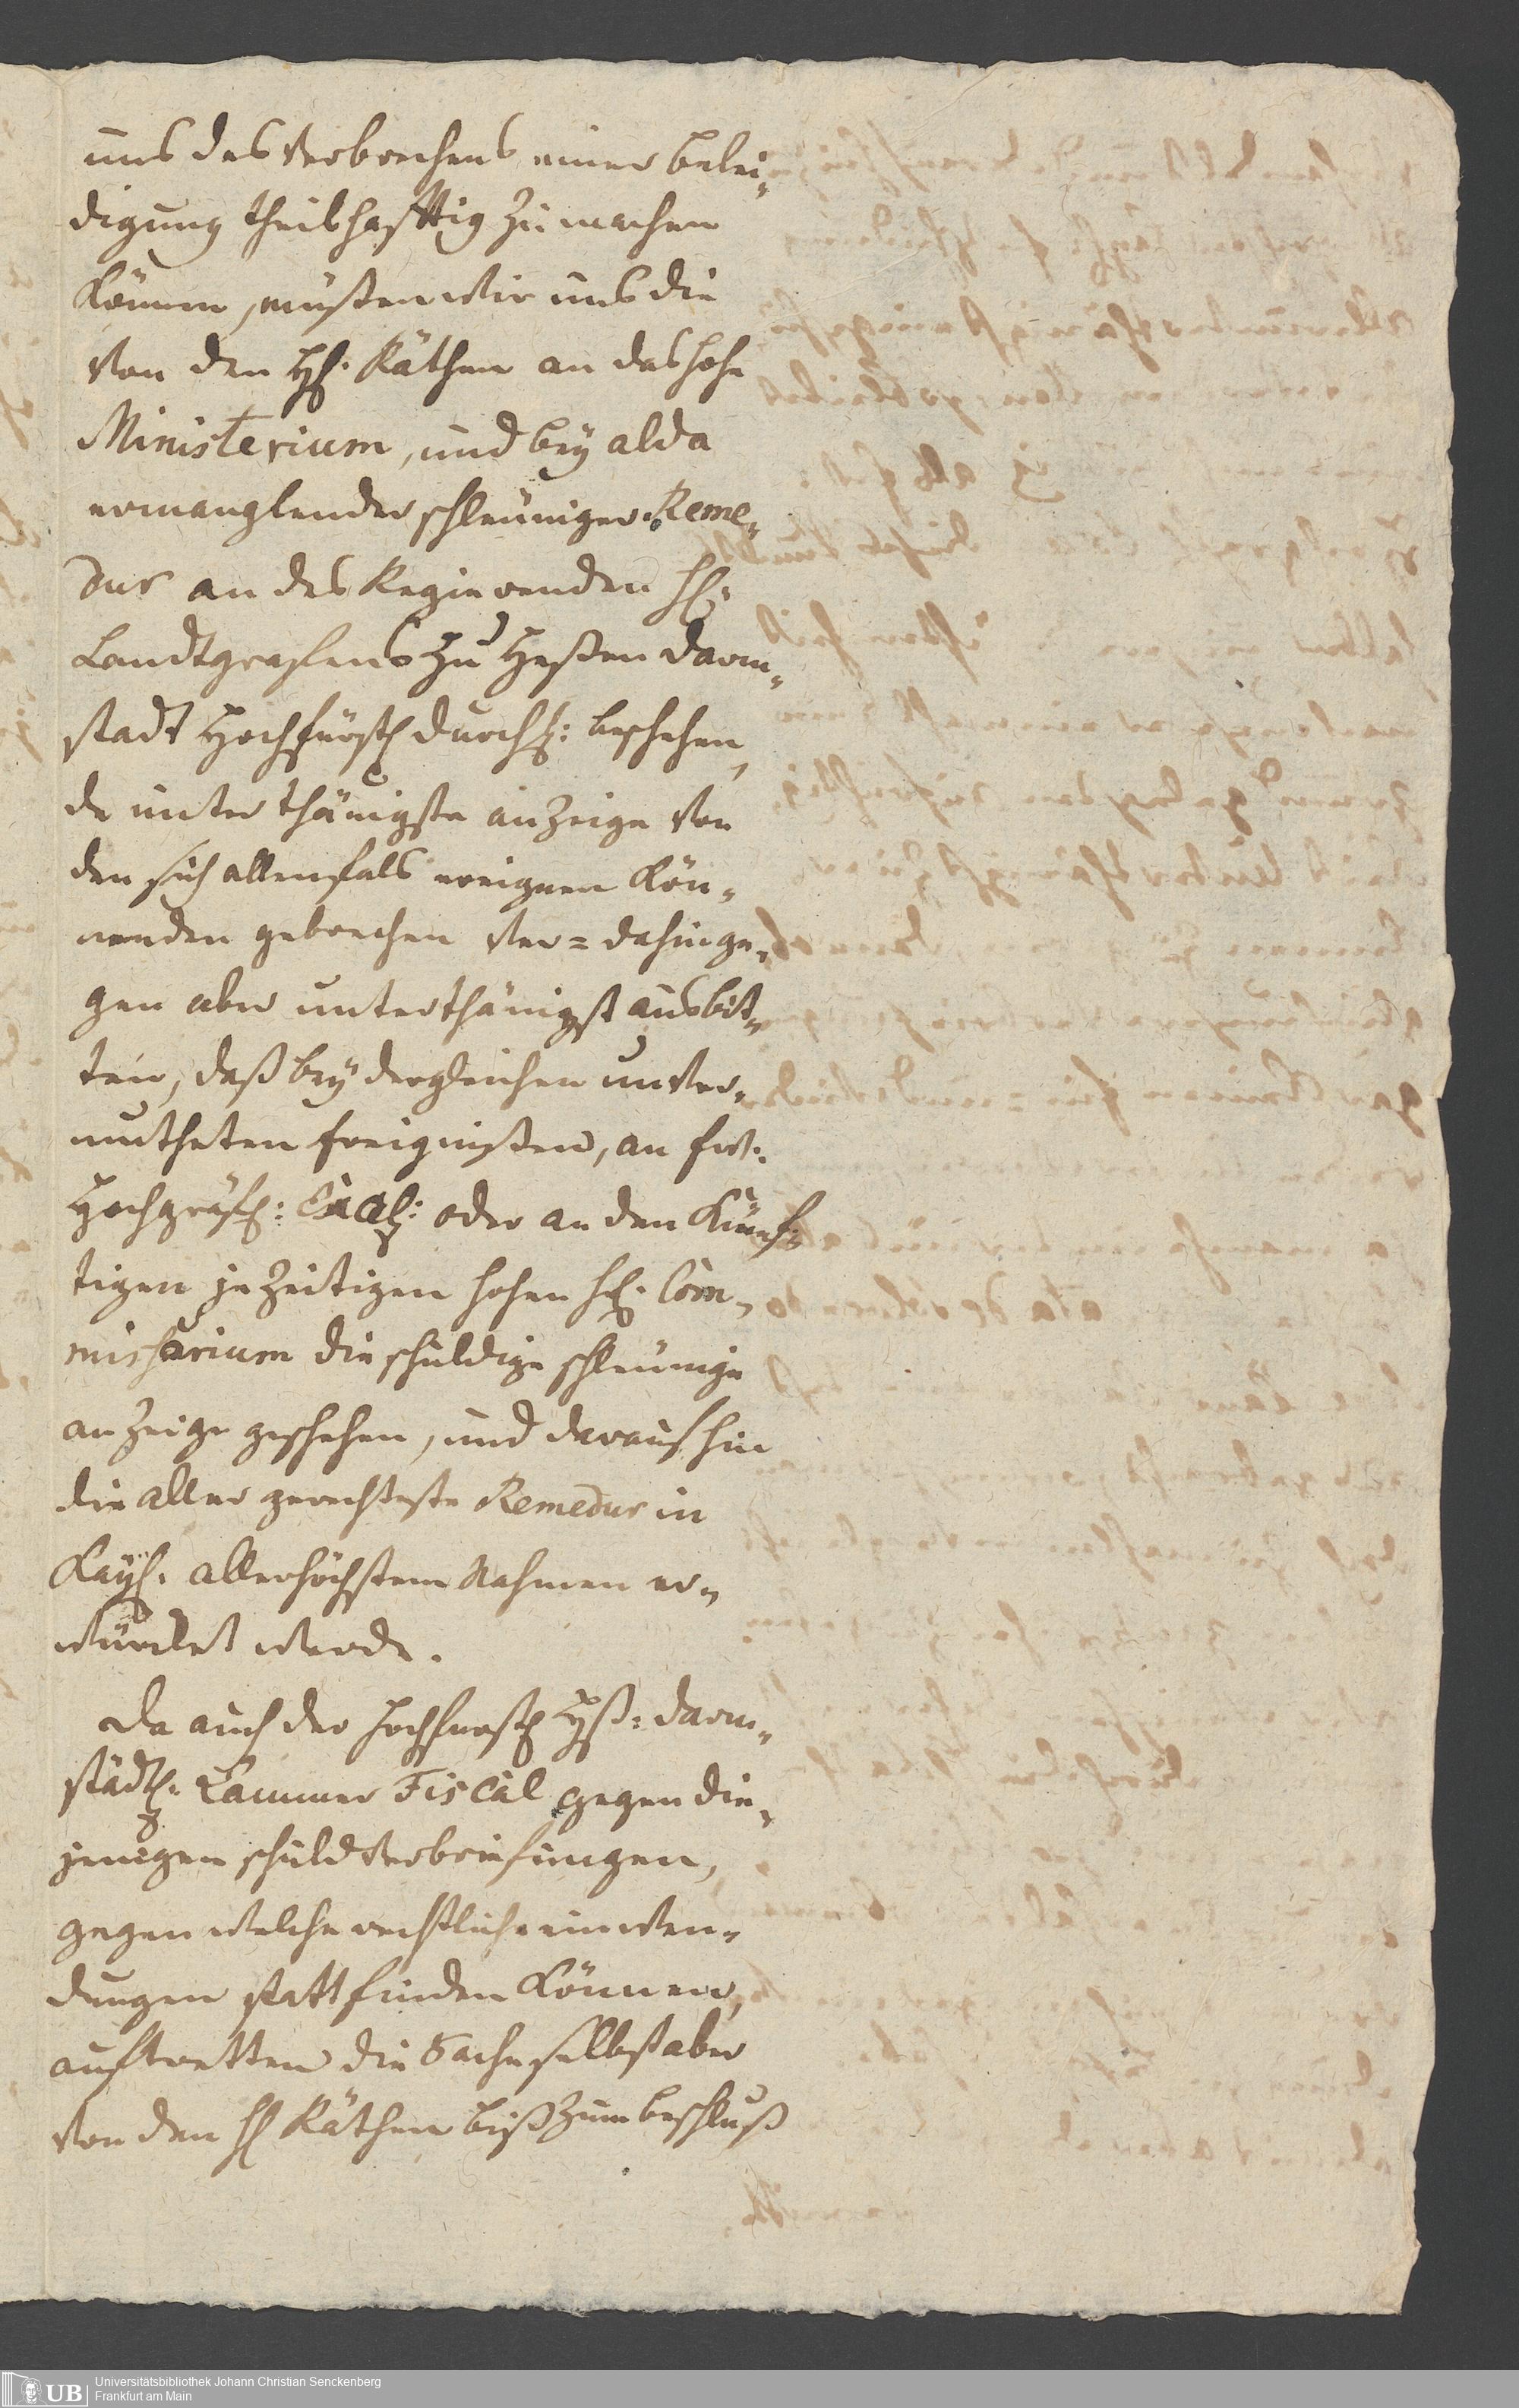 uns des Verbrechens einer Belei„
digung theilhafftig zu machen
Können, müßten wir uns die
von den HH. Räthen an das hohe
Ministerium, und bey alda
ermanglender schleuniger Reme„
dur an des Regierenden H:
Landtgrafens zu Heßen Darm„
stadt Hochfürstl Durchl: beschehen„
de unterthänigste anzeige von
den sich allenfals ereignen Kön„
nenden gebrechen ver= dahinge„
gen aber unterthänigst ausbit„
ten, daß bey dergleichen unver„
mutheten Ereignißen, an Ew:
Hochgräfl: Excell: oder an den Künf„
tigen jezeitigen hohen H. Com„
missarium die schuldige schleunige
anzeige geschehen, und daraufhin
die aller gerechteste Remedur in
Kayl. allerhöchstem Nahmen er„
würcket werde.
Da auch der Hochfürstl Heß: Darm„
städt. Cammer Fiscal gegen die„
jenigen schuldverbriefungen,
gegen welche rechtliche einwen„
dungen statt finden Können,
auftretten die Sache selbst aber
von den H Räthen biß zum beschluß
Universitätsbibliothek Johann Christian Senckenberg
Frankfurt am Main
UB